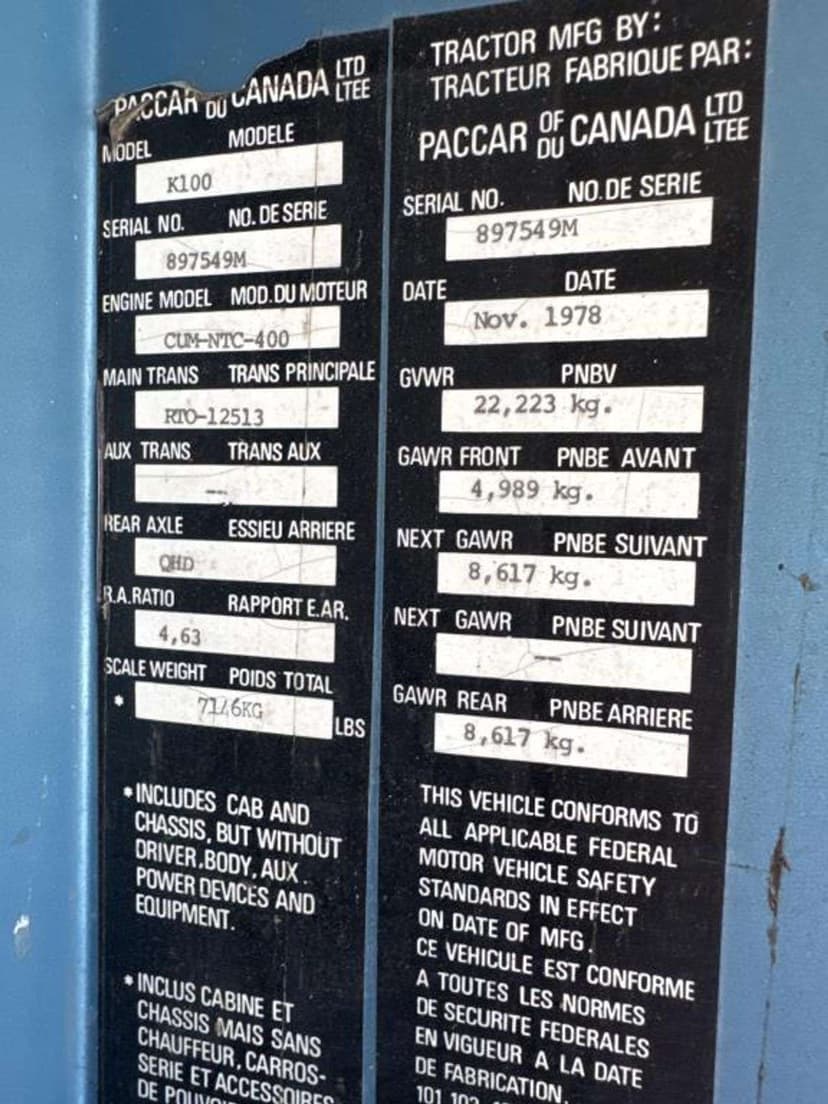 PACCAR DU CANADA LTD LTEE
MODEL MODELE
K100
SERIAL NO. NO. DE SERIE
897549M
ENGINE MODEL MOD. DU MOTEUR
CUM-NTC-400
MAIN TRANS TRANS PRINCIPALE
RTO-12513
AUX TRANS TRANS AUX
--
REAR AXLE ESSIEU ARRIERE
QHD
R.A. RATIO RAPPORT E. AR.
4,63
SCALE WEIGHT POIDS TOTAL
* LBS
*INCLUDES CAB AND
CHASSIS, BUT WITHOUT
DRIVER, BODY, AUX.
POWER DEVICES AND
EQUIPMENT.
*INCLUS CABINE ET
CHASSIS MAIS SANS
CHAUFFEUR, CARROS-
SERIE ET ACCESSOIRES
DE
TRACTOR MFG BY:
TRACTEUR FABRIQUE PAR:
PACCAR OF DU CANADA LTD LTEE
SERIAL NO. NO. DE SERIE
897549M
DATE DATE
Nov. 1978
GVWR PNBV
22,223 kg.
GAWR FRONT PNBE AVANT
4,989 kg.
NEXT GAWR PNBE SUIVANT
8,617 kg.
NEXT GAWR PNBE SUIVANT
--
GAWR REAR PNBE ARRIERE
8,617 kg.
THIS VEHICLE CONFORMS TO
ALL APPLICABLE FEDERAL
MOTOR VEHICLE SAFETY
STANDARDS IN EFFECT
ON DATE OF MFG.
CE VEHICULE EST CONFORME
A TOUTES LES NORMES
DE SECURITE FEDERALES
EN VIGUEUR A LA DATE
DE FABRICATION.
101 102